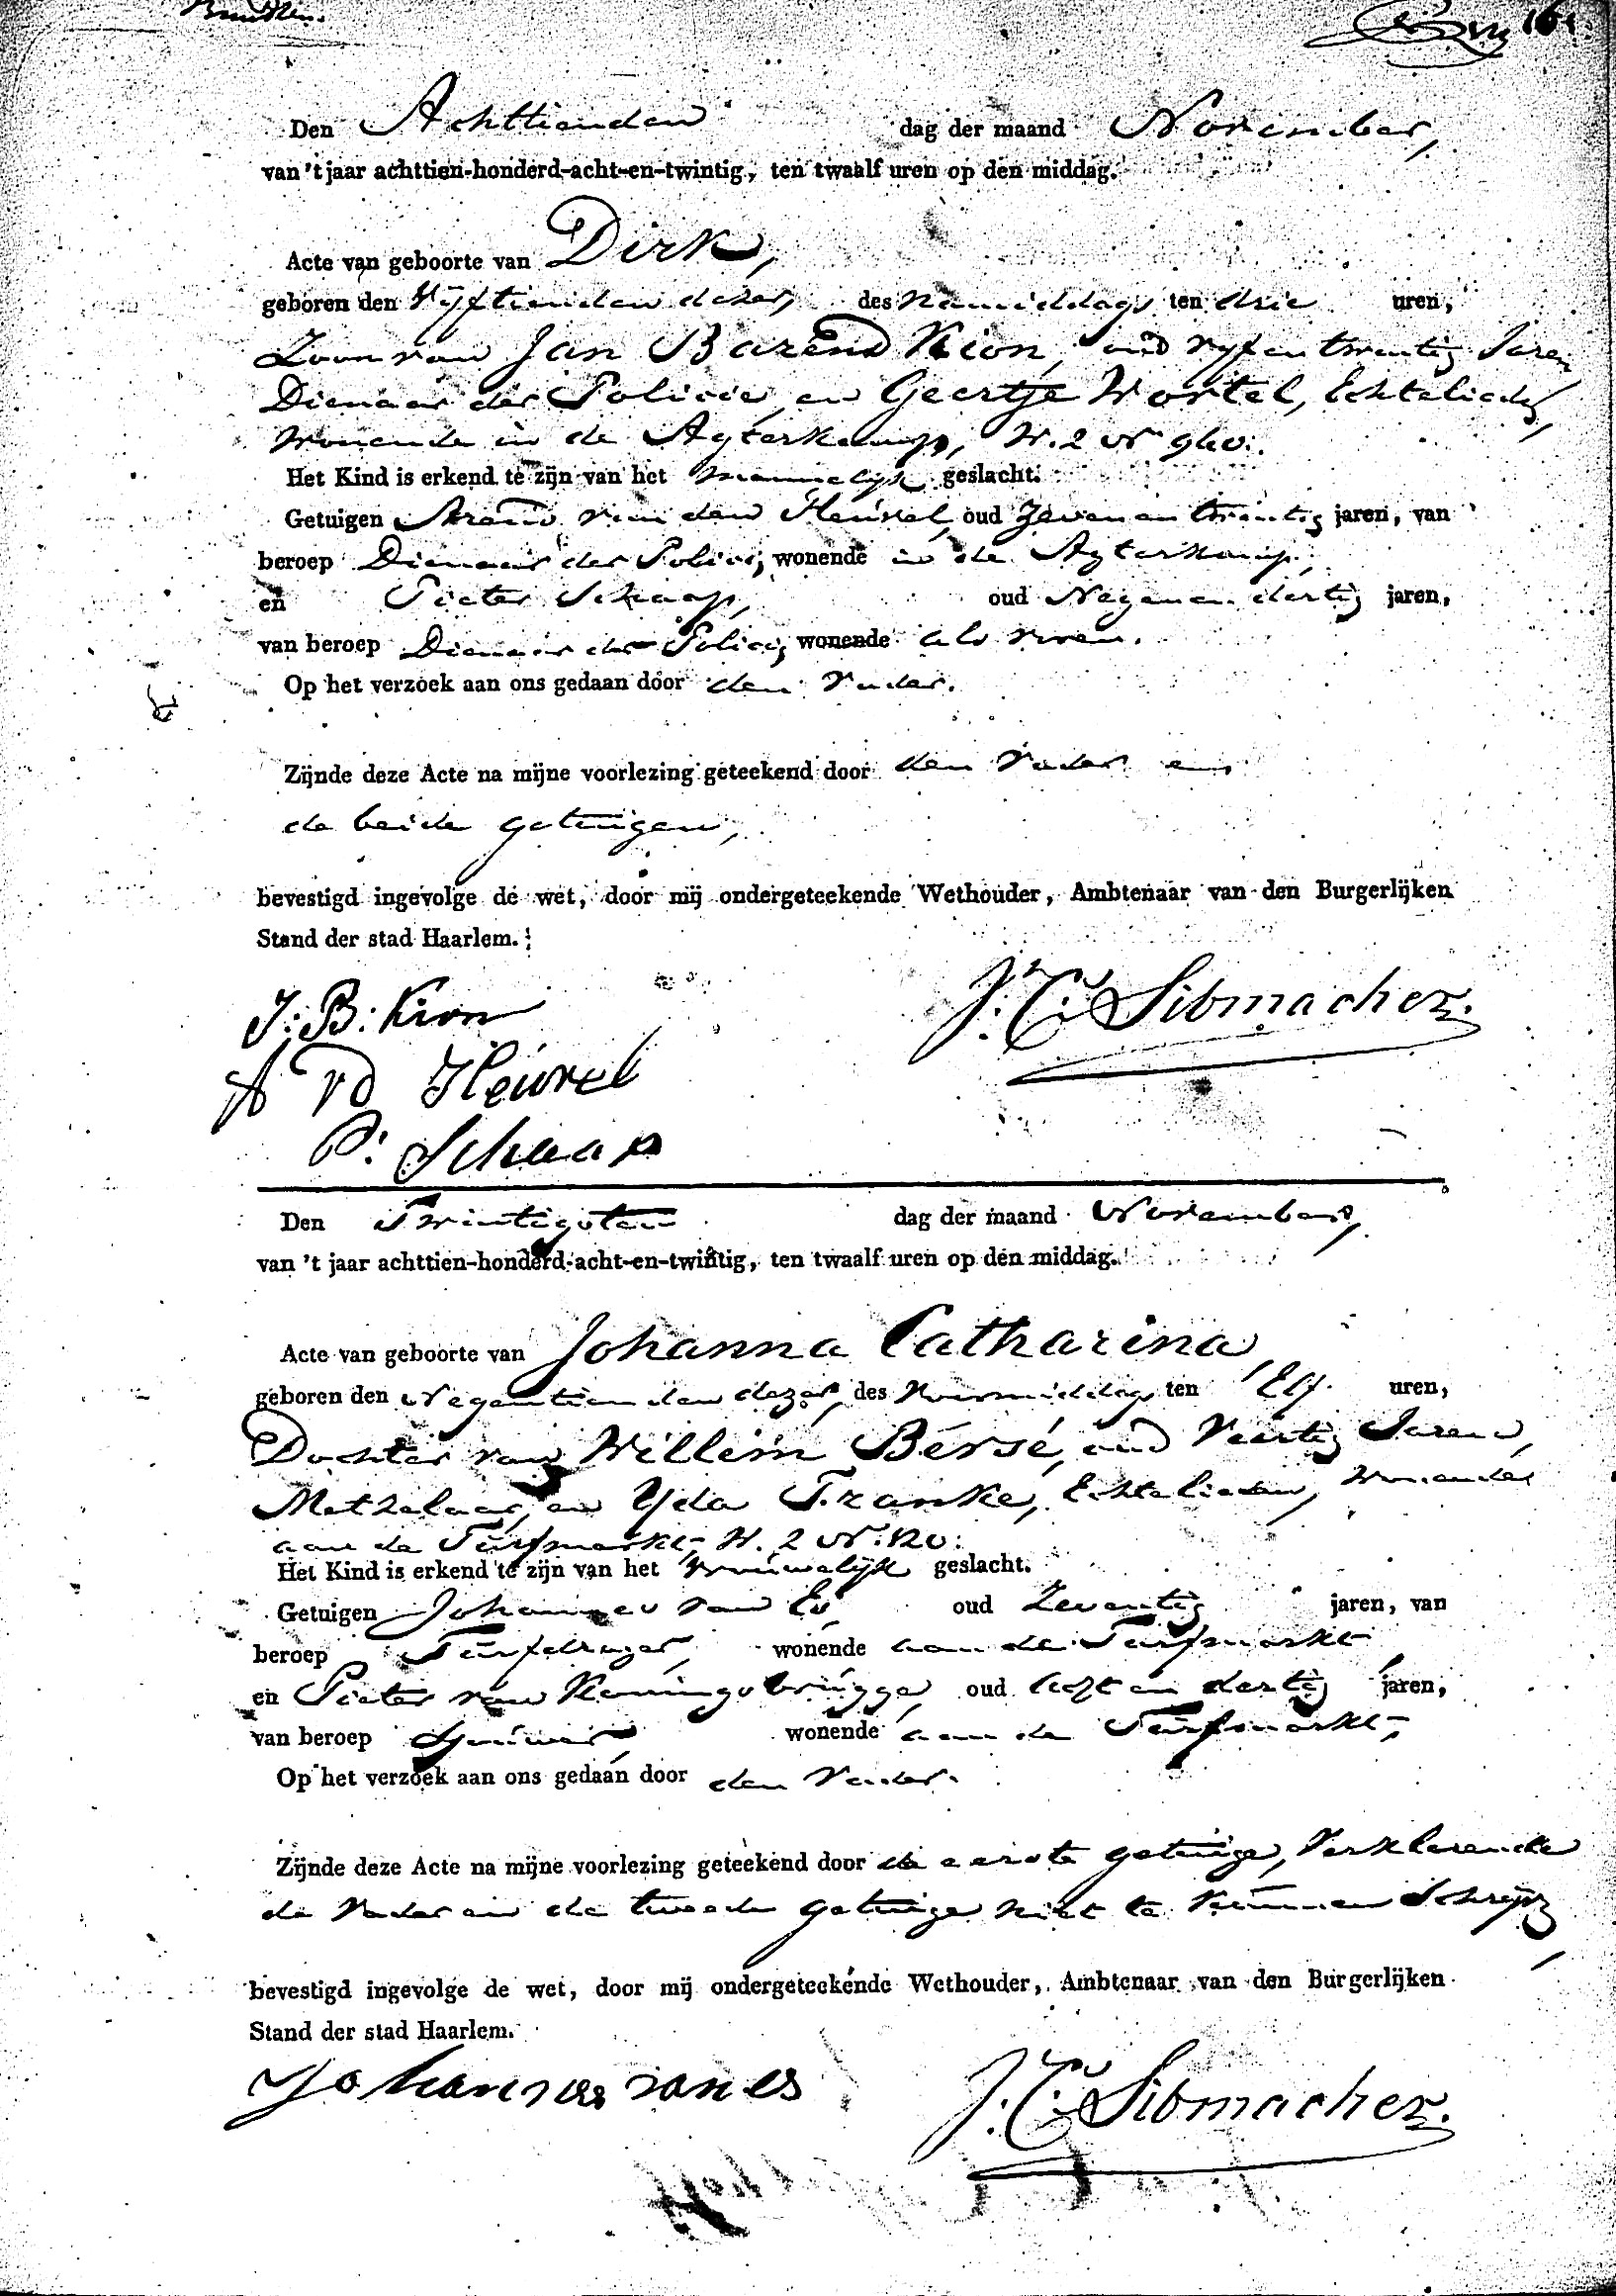 161.
Den Achttienden dag der maand November,
van 't jaar achttien-honderd-acht-en-twintig, ten twaalf uren op den middag.
Acte van geboorte van Dirk,
geboren den Vyftienden dezer, des namiddags ten drie uren,
Zoon van Jan Barend Kion, oud vyfentwintig Jaren
Dienaar der Policie, en Geertje Wortel, Echtelieden,
Wonende in de Agterkamp, W. 2 No 960.
Het Kind is erkend te zijn van het mannelyk geslacht.
Getuigen Arend van den Heuvel, oud Zevenentwintig jaren, van
beroep Dienaar der Policie, wonende in de Agterkamp
en Pieter Schaap, oud Negenendertig jaren,
van beroep Dienaar der Policie, wonende als voren.
Op het verzoek aan ons gedaan door den Vader.
Zijnde deze Acte na mijne voorlezing geteekend door den Vader en
de beide getuigen,
bevestigd ingevolge de wet, door mij ondergeteekende Wethouder, Ambtenaar van den Burgerlijken
Stand der stad Haarlem.
J: B: Kion
A vd Heuvel
P: Schaap
J: C: Sibmacher.
Den Twintigsten dag der maand November,
van 't jaar achttien-honderd-acht-en-twintig, ten twaalf uren op den middag.
Acte van geboorte van Johanna Catharina
geboren den Negentienden dezer, des Voormiddags ten Elf uren,
Dochter van Willem Bersé, oud Veertig Jaren,
Metzelaar, en Yda Franke, Echtelieden, Wonende
aan de Turfmarkt, W. 2 No. 120.
Het Kind is erkend te zijn van het Vrouwelyk geslacht.
Getuigen Johannes van Es, oud Zeventig jaren, van
beroep Turfdrager, wonende aan de Turfmarkt
en Pieter van Koningsbrugge, oud Acht en dertig jaren,
van beroep Sjouwer, wonende aan de Turfmarkt,
Op het verzoek aan ons gedaan door den Vader.
Zijnde deze Acte na mijne voorlezing geteekend door de eerste getuige, Verklarende
de Vader en de tweede getuige niet te kunnen Schryven
bevestigd ingevolge de wet, door mij ondergeteekende Wethouder, Ambtenaar van den Burgerlijken
Stand der stad Haarlem.
Johannes van es
J: C: Sibmacher.